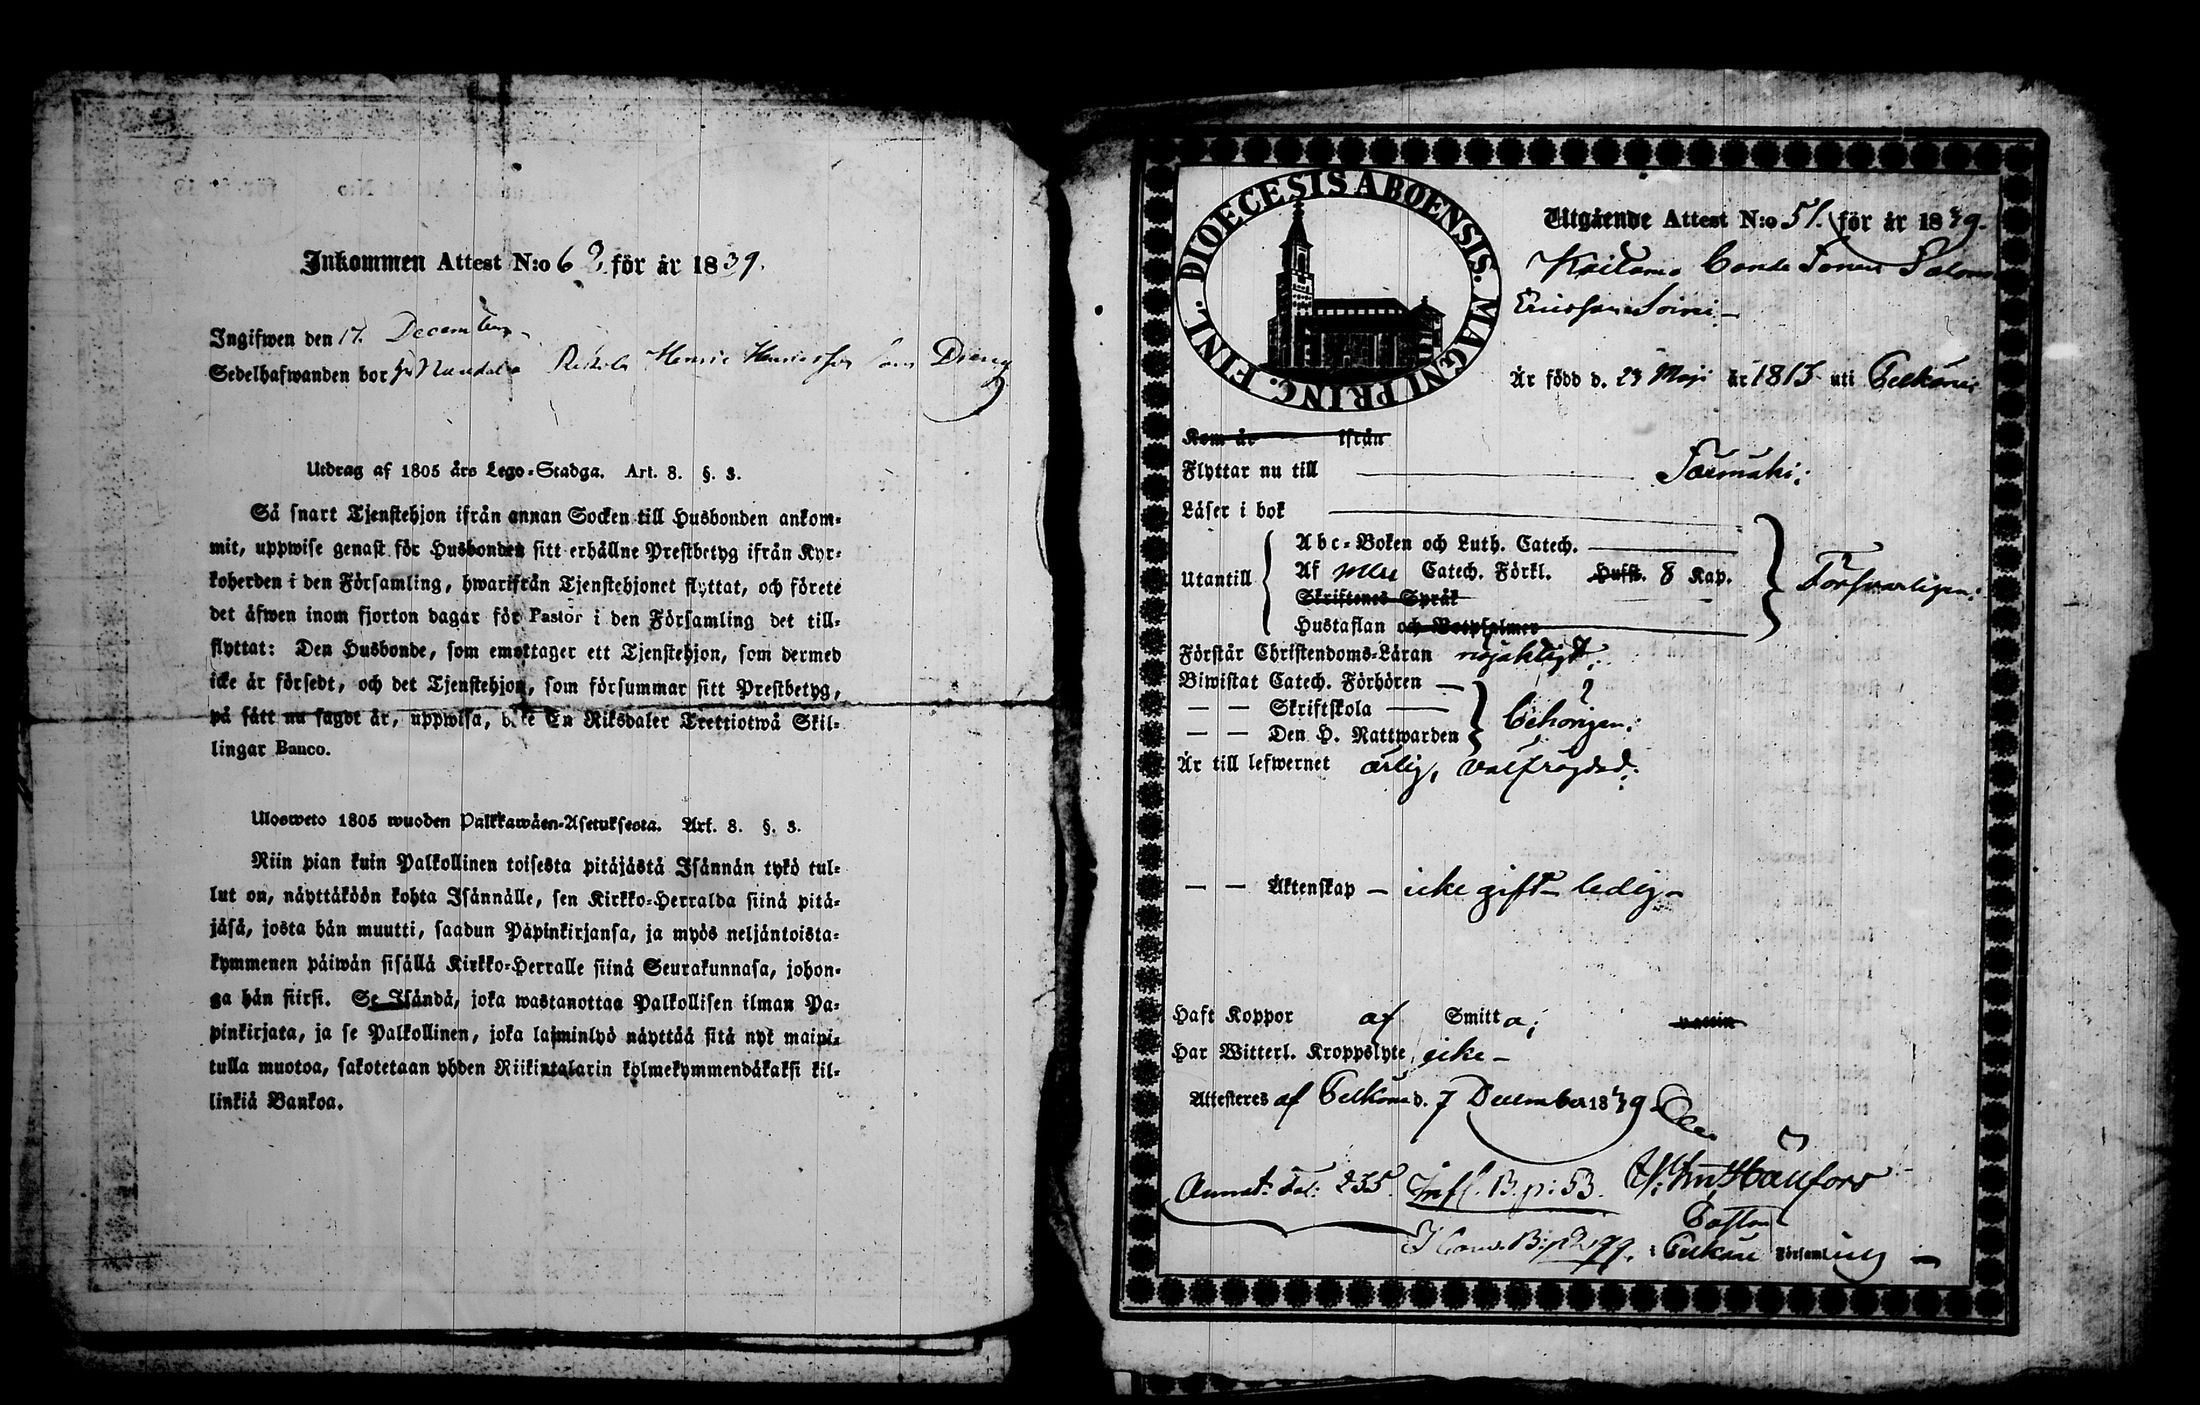 Inkommen Attest N:o 62. för år 1839.
Ingifwen den 17. December
Sedelhafwanden bor Henric Henricsson som Dreng
Utdrag af 1805 års Lego-Stadga. Art. 8. §. 3.
Så snart Tjenstehjon ifrån annan Socken till Husbonden ankom-
mit, uppwise genast för Husbonden sitt erhållne Prestbetyg ifrån Kyr-
koherden i den Församling, hwarifrån Tjenstehjonet flyttat, och förete
det äfwen inom fjorton dagar för Pastor i den Församling det till-
flyttat: Den Husbonde, som emottager ett Tjenstehjon, som dermed
icke är försedt, och det Tjenstehjon, som försummar sitt Prestbetyg,
på sätt nu sagdt är, uppwisa, böte En Riksdaler Trettiotwå Skil-
lingar Banco.
Ulosweto 1805 wuoden Palkkawäen-Asetuksesta. Art. 8. §. 3.
Niin pian kuin Palkollinen toisesta pitäjästä Isännän tykö tul-
lut on, näyttäköön kohta Isännälle, sen Kirkko-Herralda siinä pitä-
jäsä, josta hän muutti, saadun Päpinkirjansa, ja myös neljäntoista-
kymmenen päiwän sisällä Kirkko-Herralle siinä Seurakunnasa, johon-
ga hän siirsi. Se Isändä, joka wastanottaa Palkollisen ilman Pa-
pinkirjata, ja se Palkollinen, joka lajminlyö näyttää sitä nyt maini-
tulla muotoa, sakotetaan yhden Riikintalarin kolmekymmendäkaksi kil-
linkiä Bankoa.
DIOECESIS ABOENSIS. MAGNI PRINC. FINL.
Utgående Attest N:o 51. för år 1839.
Bonde Sonen Salom
Ericsson Soini
Är född d. 23 Maji år 1815 uti Pelkäne
Kom år ifrån
Flyttar nu till
Läser i bok
Utantill
Abc-Boken och Luth. Catech.
Af Catech. Förkl. Hufst. 8 Kap.
Skriftenes Språk
Hustaflan och Botpsalmer
Försvarligen.
Förstår Christendoms-Läran nöjaktigt.
Biwistat Catech. Förhören
— — Skriftskola
— — Den H. Nattwarden
behörigen.
Är till lefwernet ärlig, välfrägdad.
— — Äktenskap — icke gift — ledig —
Haft Koppor af Smitta; vaccin
Har Witterl. Kroppslyte icke —
Attesteres af Pelkäne d. 7 December 1839
Annot. Fol: 235. Infl. B. p: 53. Hällfors
Pastor
i Pelkäne Församling —